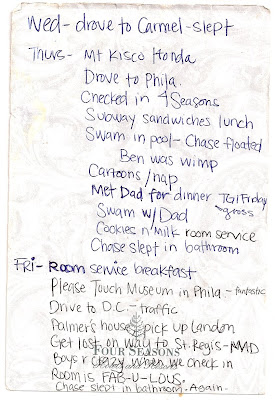 Wed- drove to Carmel - slept
Thurs- Mt Kisco Honda
Drove to Phila.
Checked in 4 Seasons
Subway sandwiches lunch
Swam in pool - Chase floated
Ben was wimp
Cartoons / nap
Met Dad for dinner TGI Friday
gross
Swam w/ Dad
Cookies n milk room service
Chase slept in bathroom
FRI- Room service breakfast
Please Touch Museum in Phila - fantastic
Drive to D.C. - traffic
Palmer's house pick up Landon
Get lost on way to St. Regis - MD
FOUR SEASONS
Boys r crazy when we check in
Room is FAB-U-LOUS.
Chase slept in bathroom. Again.